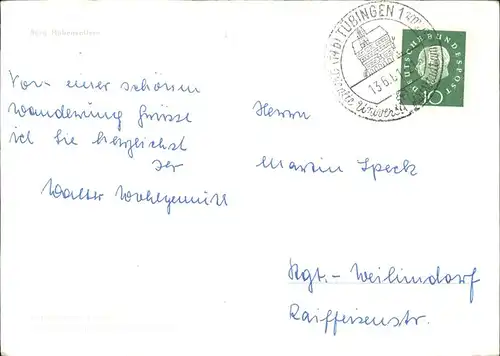 Burg Hohenzollern
Von einer schönen
Wanderung Grüsse
ich Sie herzlichst
Ihr
Walter Wohlgemuth
TÜBINGEN 1
13.6.61
DEUTSCHE BUNDESPOST
10
Herrn
Martin Speck
Stgt.-Weilimdorf
Raiffeisenstr.